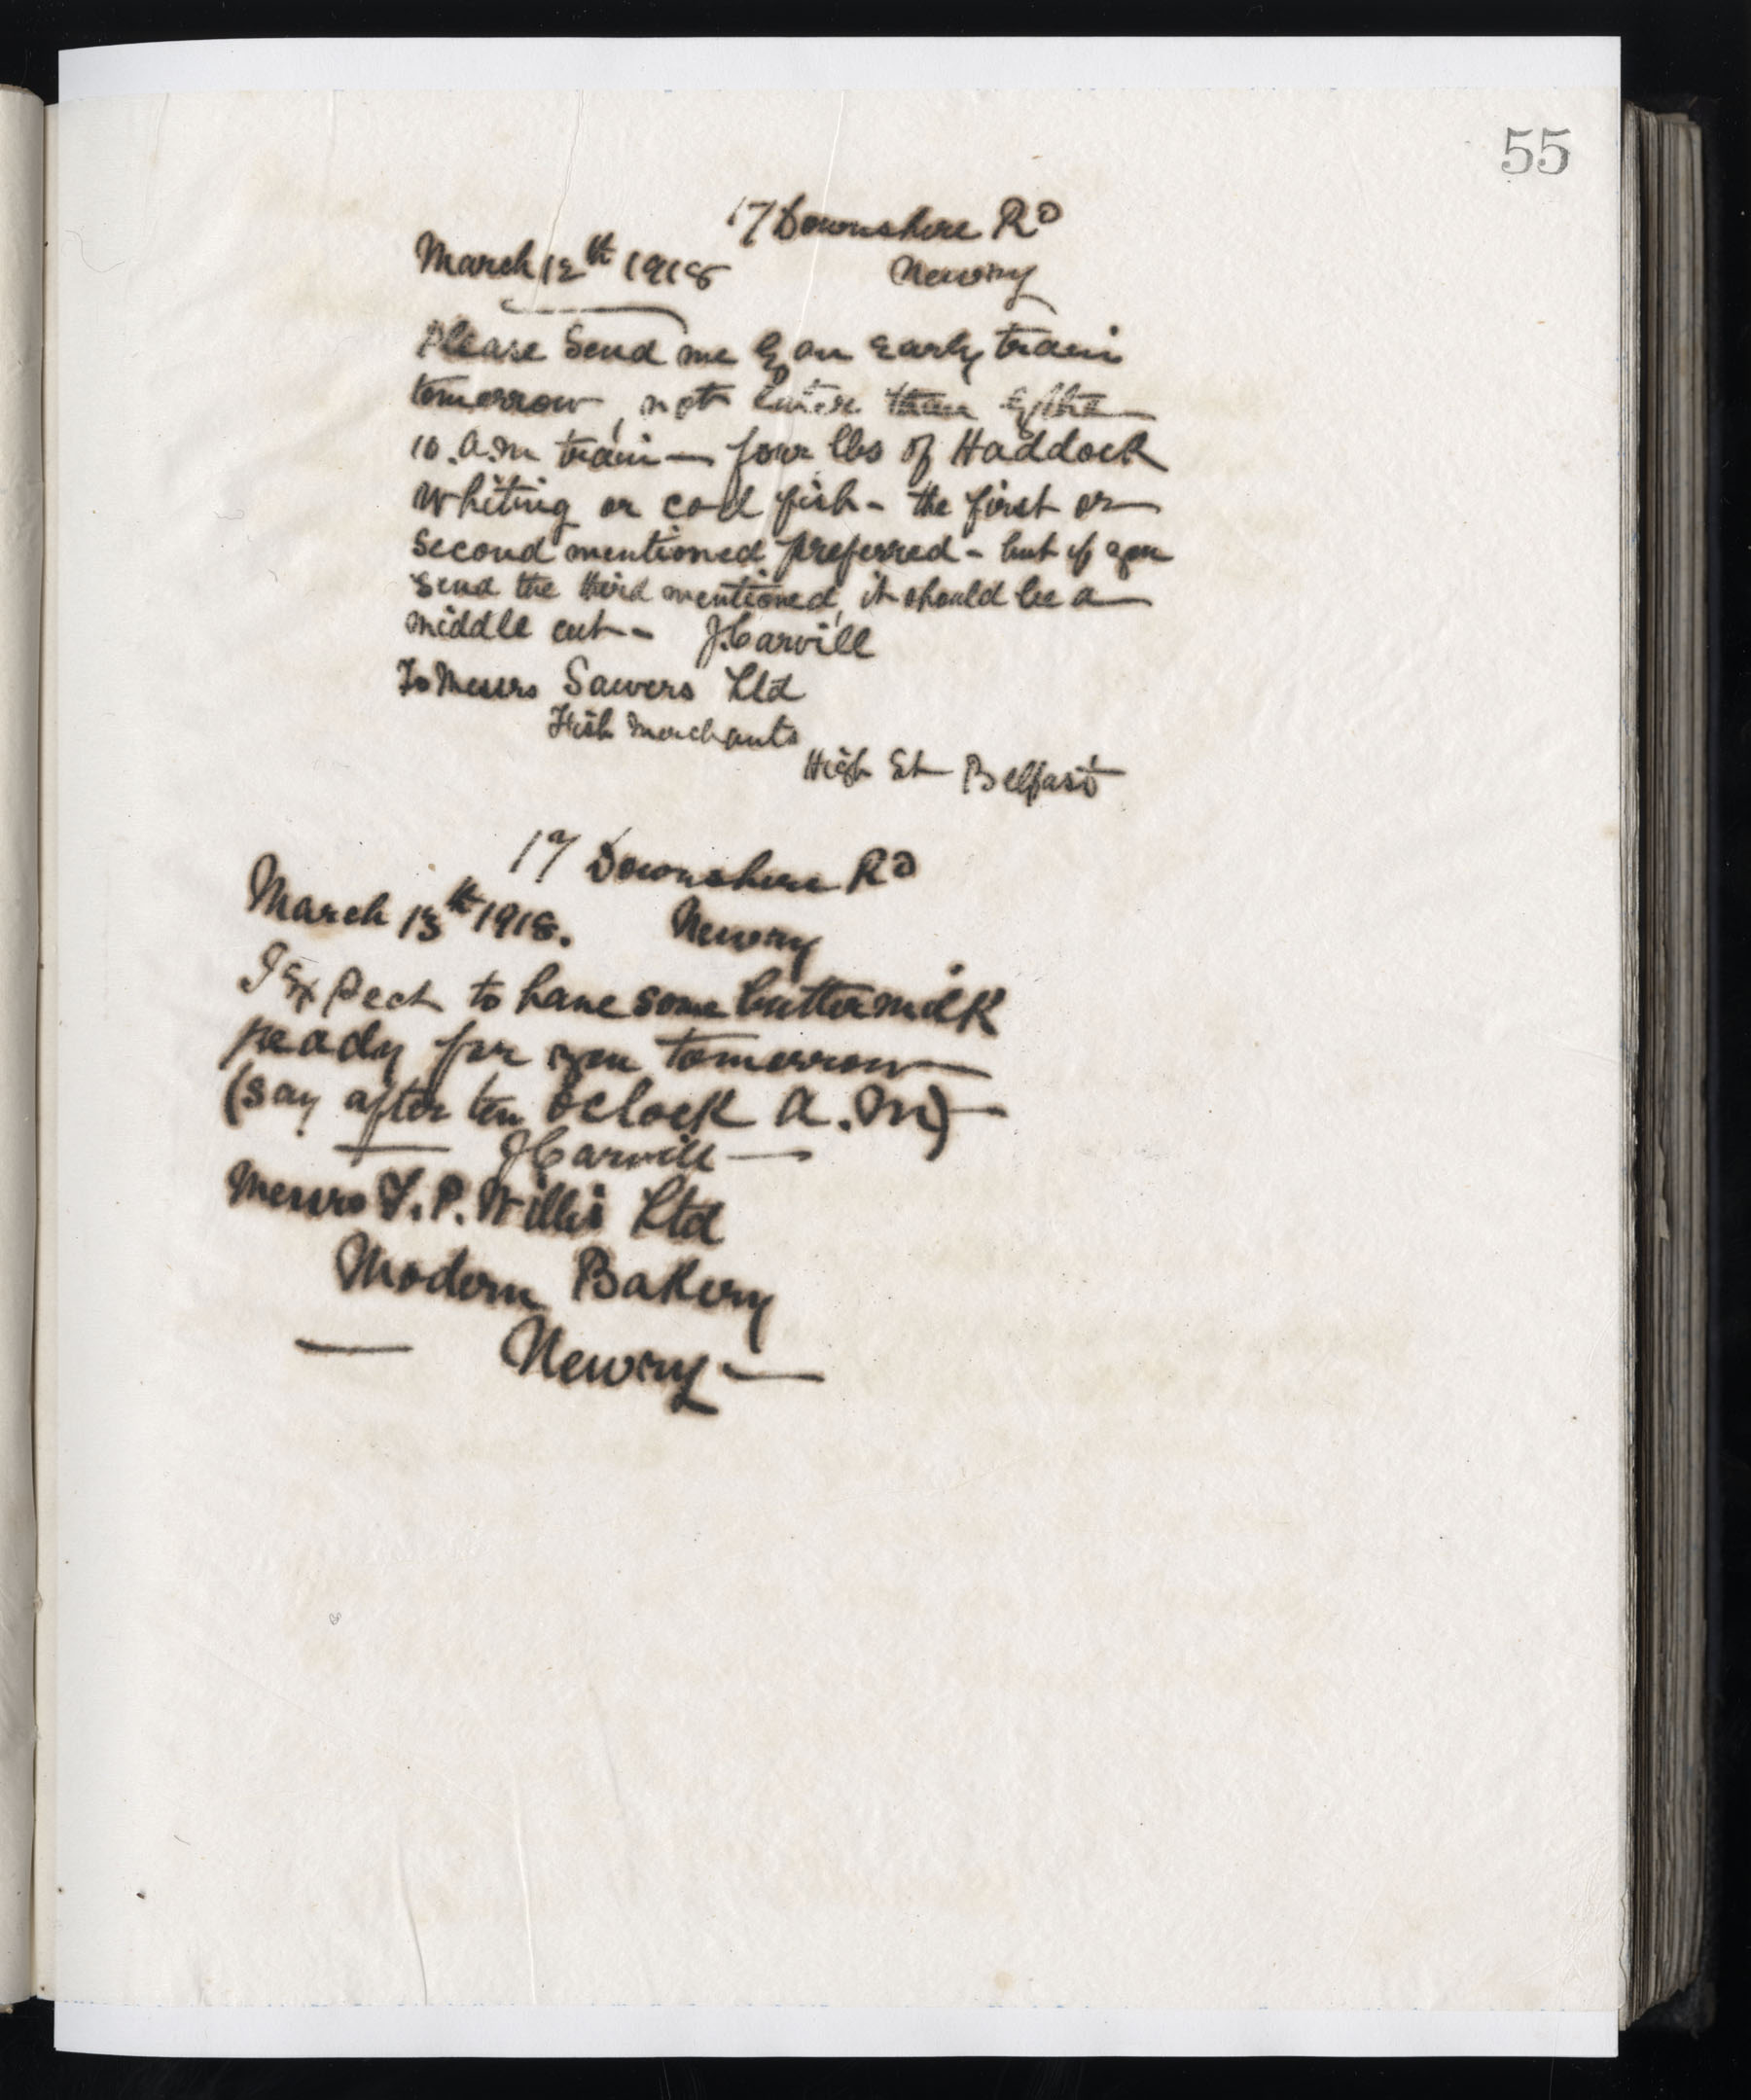 55
17 Downshire Rd
March 12th 1918
Newry
Please Send me by an early train
tomorrow, not later than by the
10. a.m train — four lbs of Haddock
Whiting or cod fish - the first or
second mentioned preferred - but if you
send the third mentioned, it should be a
middle cut - J. Carvill
To Messrs Sawers Ltd
Fish Merchants
High St Belfast
17 Downshire Rd
March 13th 1918.
Newry
I Expect to have some buttermilk
ready for you tomorrow
(say after ten oclock a.m) —
J Carvill —
Messrs F. P. Willis Ltd
Modern Bakery
— Newry —